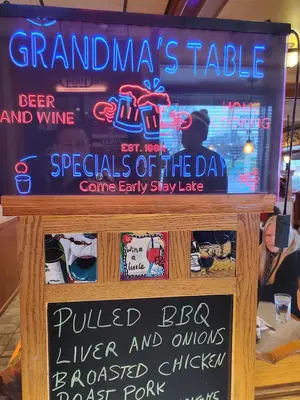 GRANDMA'S TABLE
BEER
AND WINE
EST.
SPECIALS OF THE DAY
Come Early Stay Late
wine
a
little
PULLED BBQ
LIVER AND ONIONS
BROASTED CHICKEN
ROAST PORK